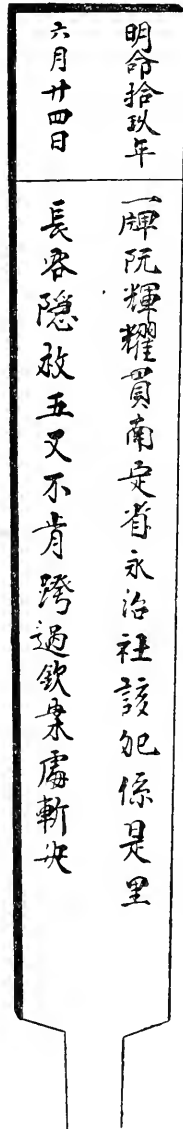 明命拾玖年
六月廿四日
一牌阮輝耀貫南定省永治社該犯係是里
長容隱敢五又不肯跨過欽案處斬决